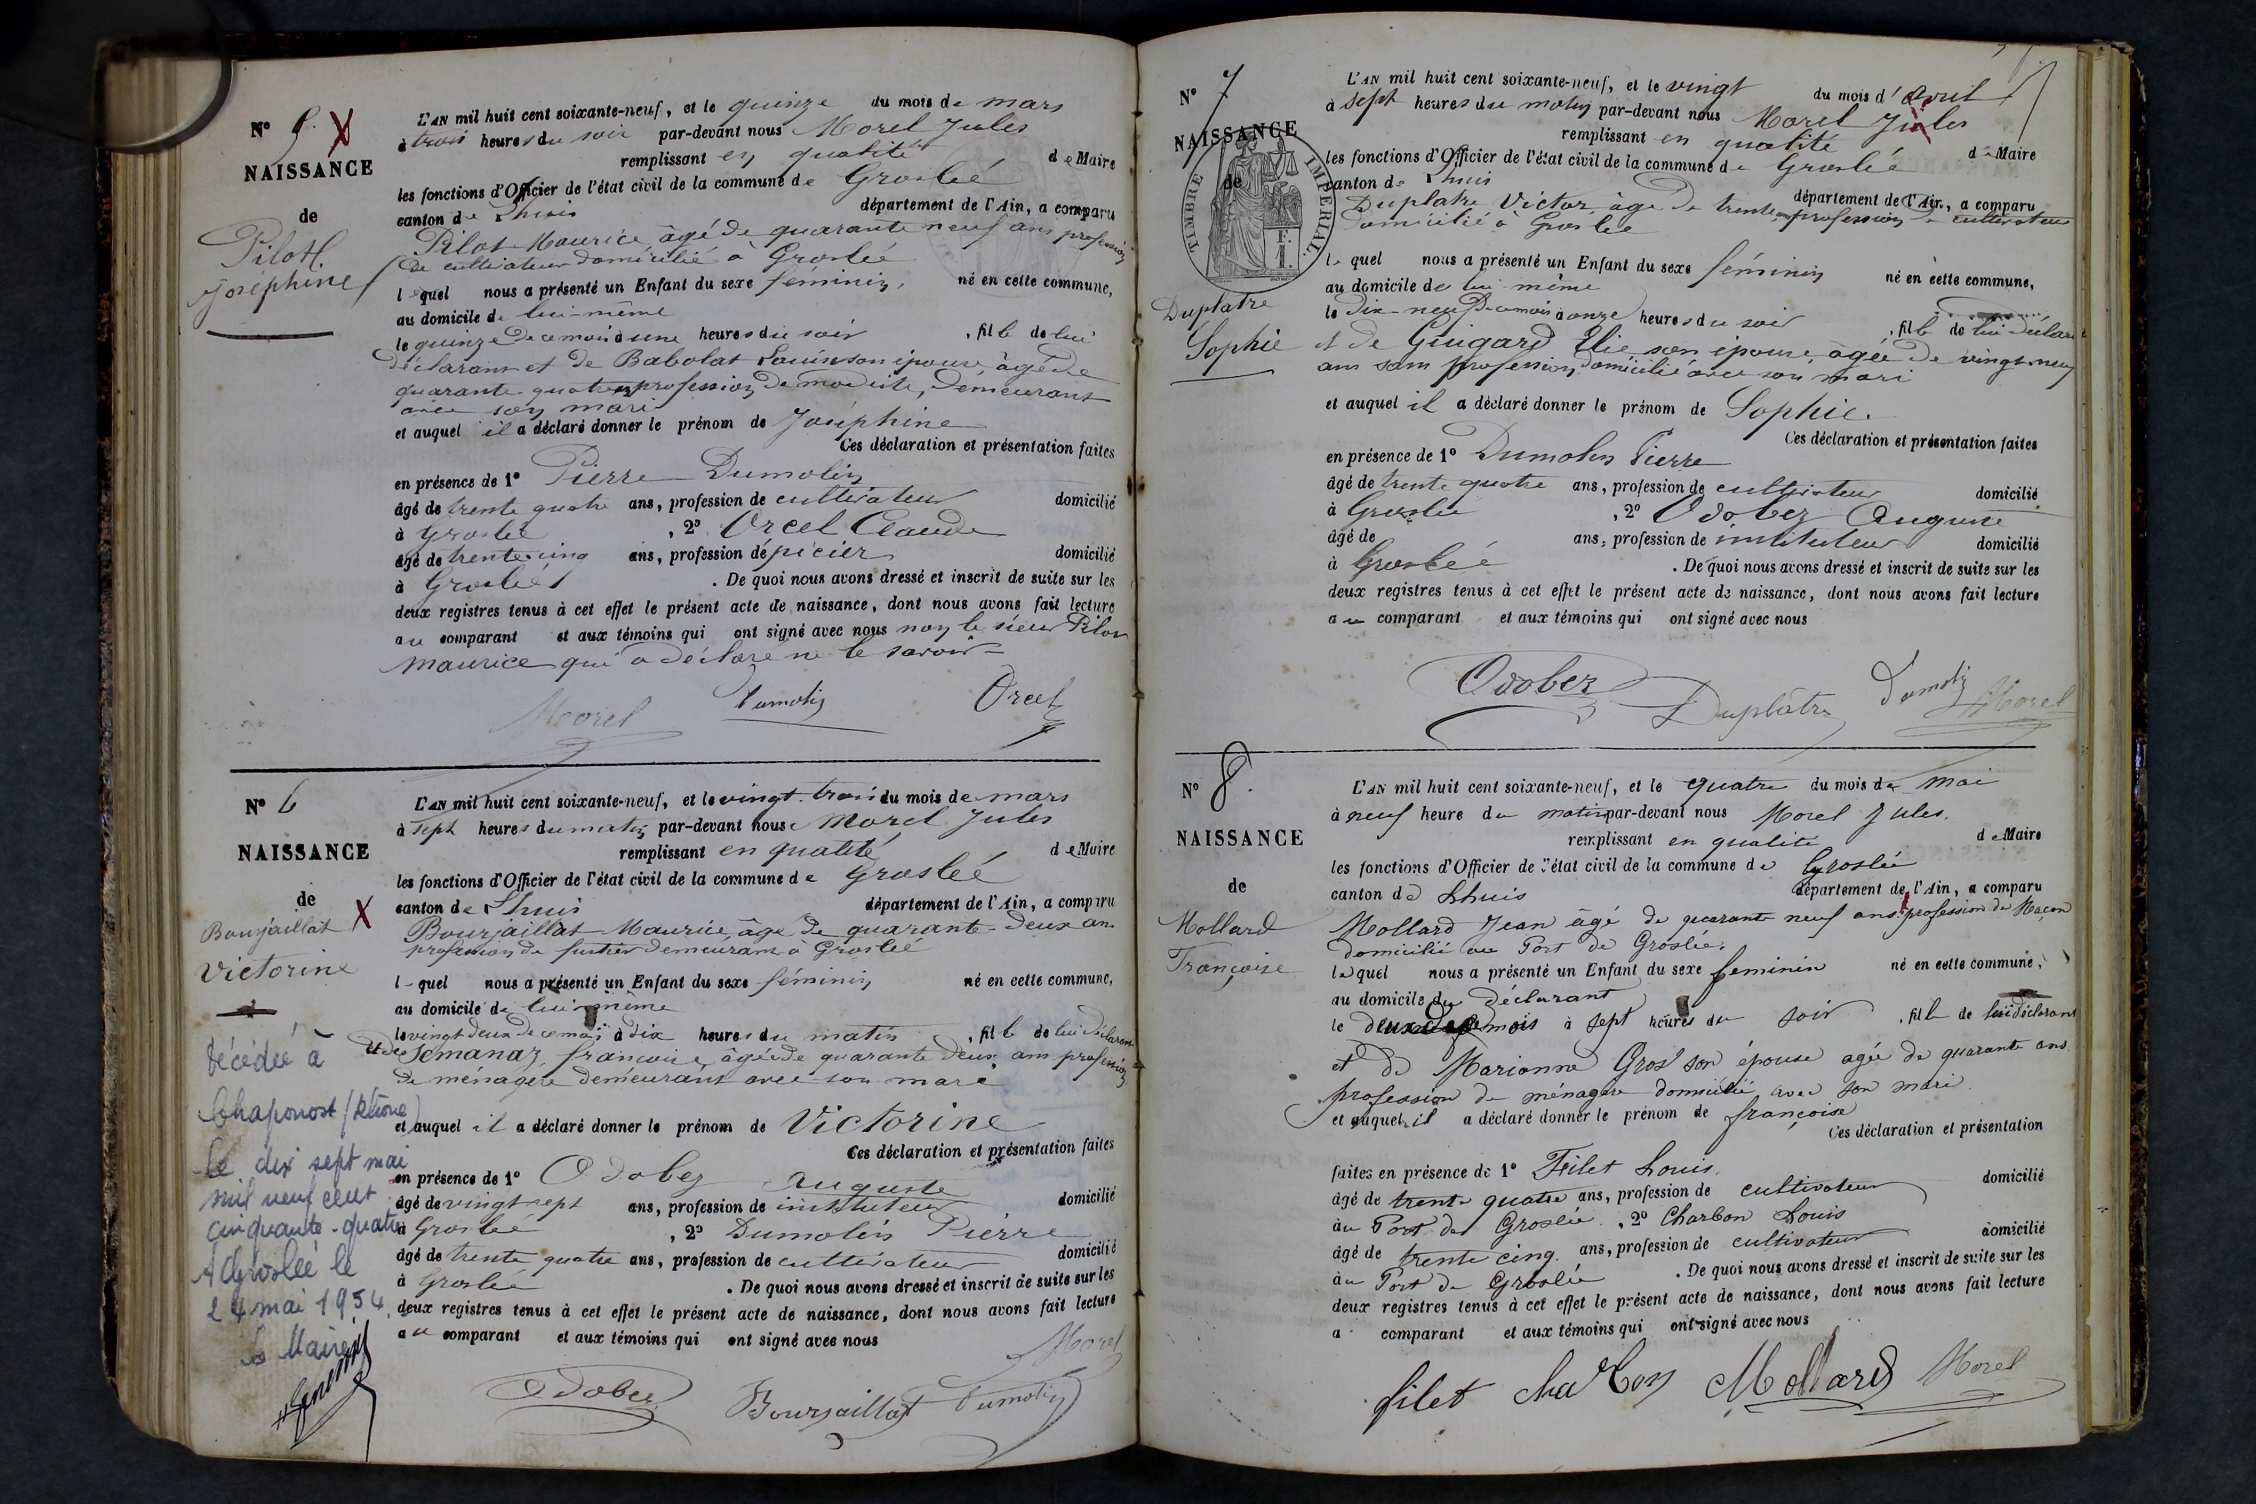 N° 5. X
NAISSANCE
de
Pilot
Joséphine
L'AN mil huit cent soixante-neuf, et le quinze du mois de mars
à trois heures du soir par-devant nous Morel Jules
remplissant en qualité de Maire
les fonctions d'Officier de l'état civil de la commune de Groslée
canton de Lhuis département de l'Ain, a comparu
Pilot Maurice, âgé de quarante neuf ans profession
de cultivateur domicilié à Groslée
lequel nous a présenté un Enfant du sexe féminin, né en cette commune,
au domicile de lui-même
le quinze de ce mois à une heures du soir, fille de lui
déclarant et de Babolat son épouse, âgée de
quarante quatre profession de modiste, demeurant
avec son mari
et auquel il a déclaré donner le prénom de Joséphine
Ces déclaration et présentation faites
en présence de 1° Pierre Dumolin
âgé de trente quatre ans, profession de cultivateur domicilié
à Groslée, 2° Orcel Claude
âgé de trente cinq ans, profession d'épicier domicilié
à Groslée. De quoi nous avons dressé et inscrit de suite sur les
deux registres tenus à cet effet le présent acte de naissance, dont nous avons fait lecture
au comparant et aux témoins qui ont signé avec nous non le sieur Pilot
Maurice qui a déclaré ne le savoir
Morel Dumolin Orcel
N° 6
NAISSANCE
de
X
Bourjaillat
Victorine
Décédée à
Chaponost (Rhône)
le dix sept mai
mil neuf cent
cinquante-quatre
A Groslée le
24 mai 1954.
Le Maire
L'AN mil huit cent soixante-neuf, et le vingt-trois du mois de mars
à sept heures du matin par-devant nous Morel Jules
remplissant en qualité de Maire
les fonctions d'Officier de l'état civil de la commune de Groslée
canton de Lhuis département de l'Ain, a comparu
Bourjaillat Maurice, âgé de quarante-deux ans
profession de demeurant à Groslée
lequel nous a présenté un Enfant du sexe féminin né en cette commune,
au domicile de lui même
le vingt deux de ce mois à dix heures du matin, fille de lui déclarant
et de Semanaz françoise, âgée de quarante deux ans profession
de ménagère demeurant avec son mari
et auquel il a déclaré donner le prénom de Victorine
Ces déclaration et présentation faites
en présence de 1° Odobez Auguste
âgé de vingt sept ans, profession de instituteur domicilié
à Groslée, 2° Dumolin Pierre
âgé de trente quatre ans, profession de cultivateur domicilié
à Groslée. De quoi nous avons dressé et inscrit de suite sur les
deux registres tenus à cet effet le présent acte de naissance, dont nous avons fait lecture
au comparant et aux témoins qui ont signé avec nous
Morel
Odobez Bourjaillat Dumolin
N° 7
NAISSANCE
de
TIMBRE IMPERIAL.
F. 1
Duplatre
Sophie
L'AN mil huit cent soixante-neuf, et le vingt du mois d'avril
à sept heures du matin par-devant nous Morel Jules
remplissant en qualité de Maire
les fonctions d'Officier de l'état civil de la commune de Groslée
canton de Lhuis département de l'Ain, a comparu
Duplatre Victor, âgé de trente profession de cultivateur
domicilié à Groslée
lequel nous a présenté un Enfant du sexe féminin né en cette commune,
au domicile de lui même
le dix-neuf de ce mois à onze heures du soir, fille de lui déclarant
et de Guigard Elie son épouse, âgée de vingt-neuf
ans sans profession, domiciliée avec son mari
et auquel il a déclaré donner le prénom de Sophie.
Ces déclaration et présentation faites
en présence de 1° Dumolin Pierre
âgé de trente quatre ans, profession de cultivateur domicilié
à Groslée, 2° Odobez Auguste
âgé de ans, profession de instituteur domicilié
à Groslée. De quoi nous avons dressé et inscrit de suite sur les
deux registres tenus à cet effet le présent acte de naissance, dont nous avons fait lecture
au comparant et aux témoins qui ont signé avec nous
Odobez Duplatre Dumolin Morel
N° 8.
NAISSANCE
de
Mollard
Françoise
L'AN mil huit cent soixante-neuf, et le quatre du mois de mai
à neuf heure du matin par-devant nous Morel Jules.
remplissant en qualité de Maire
les fonctions d'Officier de l'état civil de la commune de Groslée
canton de Lhuis département de l'Ain, a comparu
Mollard Jean âgé de quarante neuf ans profession de Maçon
domicilié au Port de Groslée.
lequel nous a présenté un Enfant du sexe feminin né en cette commune,
au domicile du déclarant
le deux de ce mois à sept heures du soir, fille de lui déclarant
et de Marionne Gros son épouse agée de quarante ans
profession de ménagère domicilié avec son mari.
et auquel il a déclaré donner le prénom de françoise
Ces déclaration et présentation
faites en présence de 1° Filet Louis. domicilié
âgé de trente quatre ans, profession de cultivateur
au Port de Groslée, 2° Charbon Louis
âgé de trente cinq. ans, profession de cultivateur domicilié
au Port de Groslée. De quoi nous avons dressé et inscrit de suite sur les
deux registres tenus à cet effet le présent acte de naissance, dont nous avons fait lecture
a comparant et aux témoins qui ont signé avec nous
filet Charbon Mollard Morel